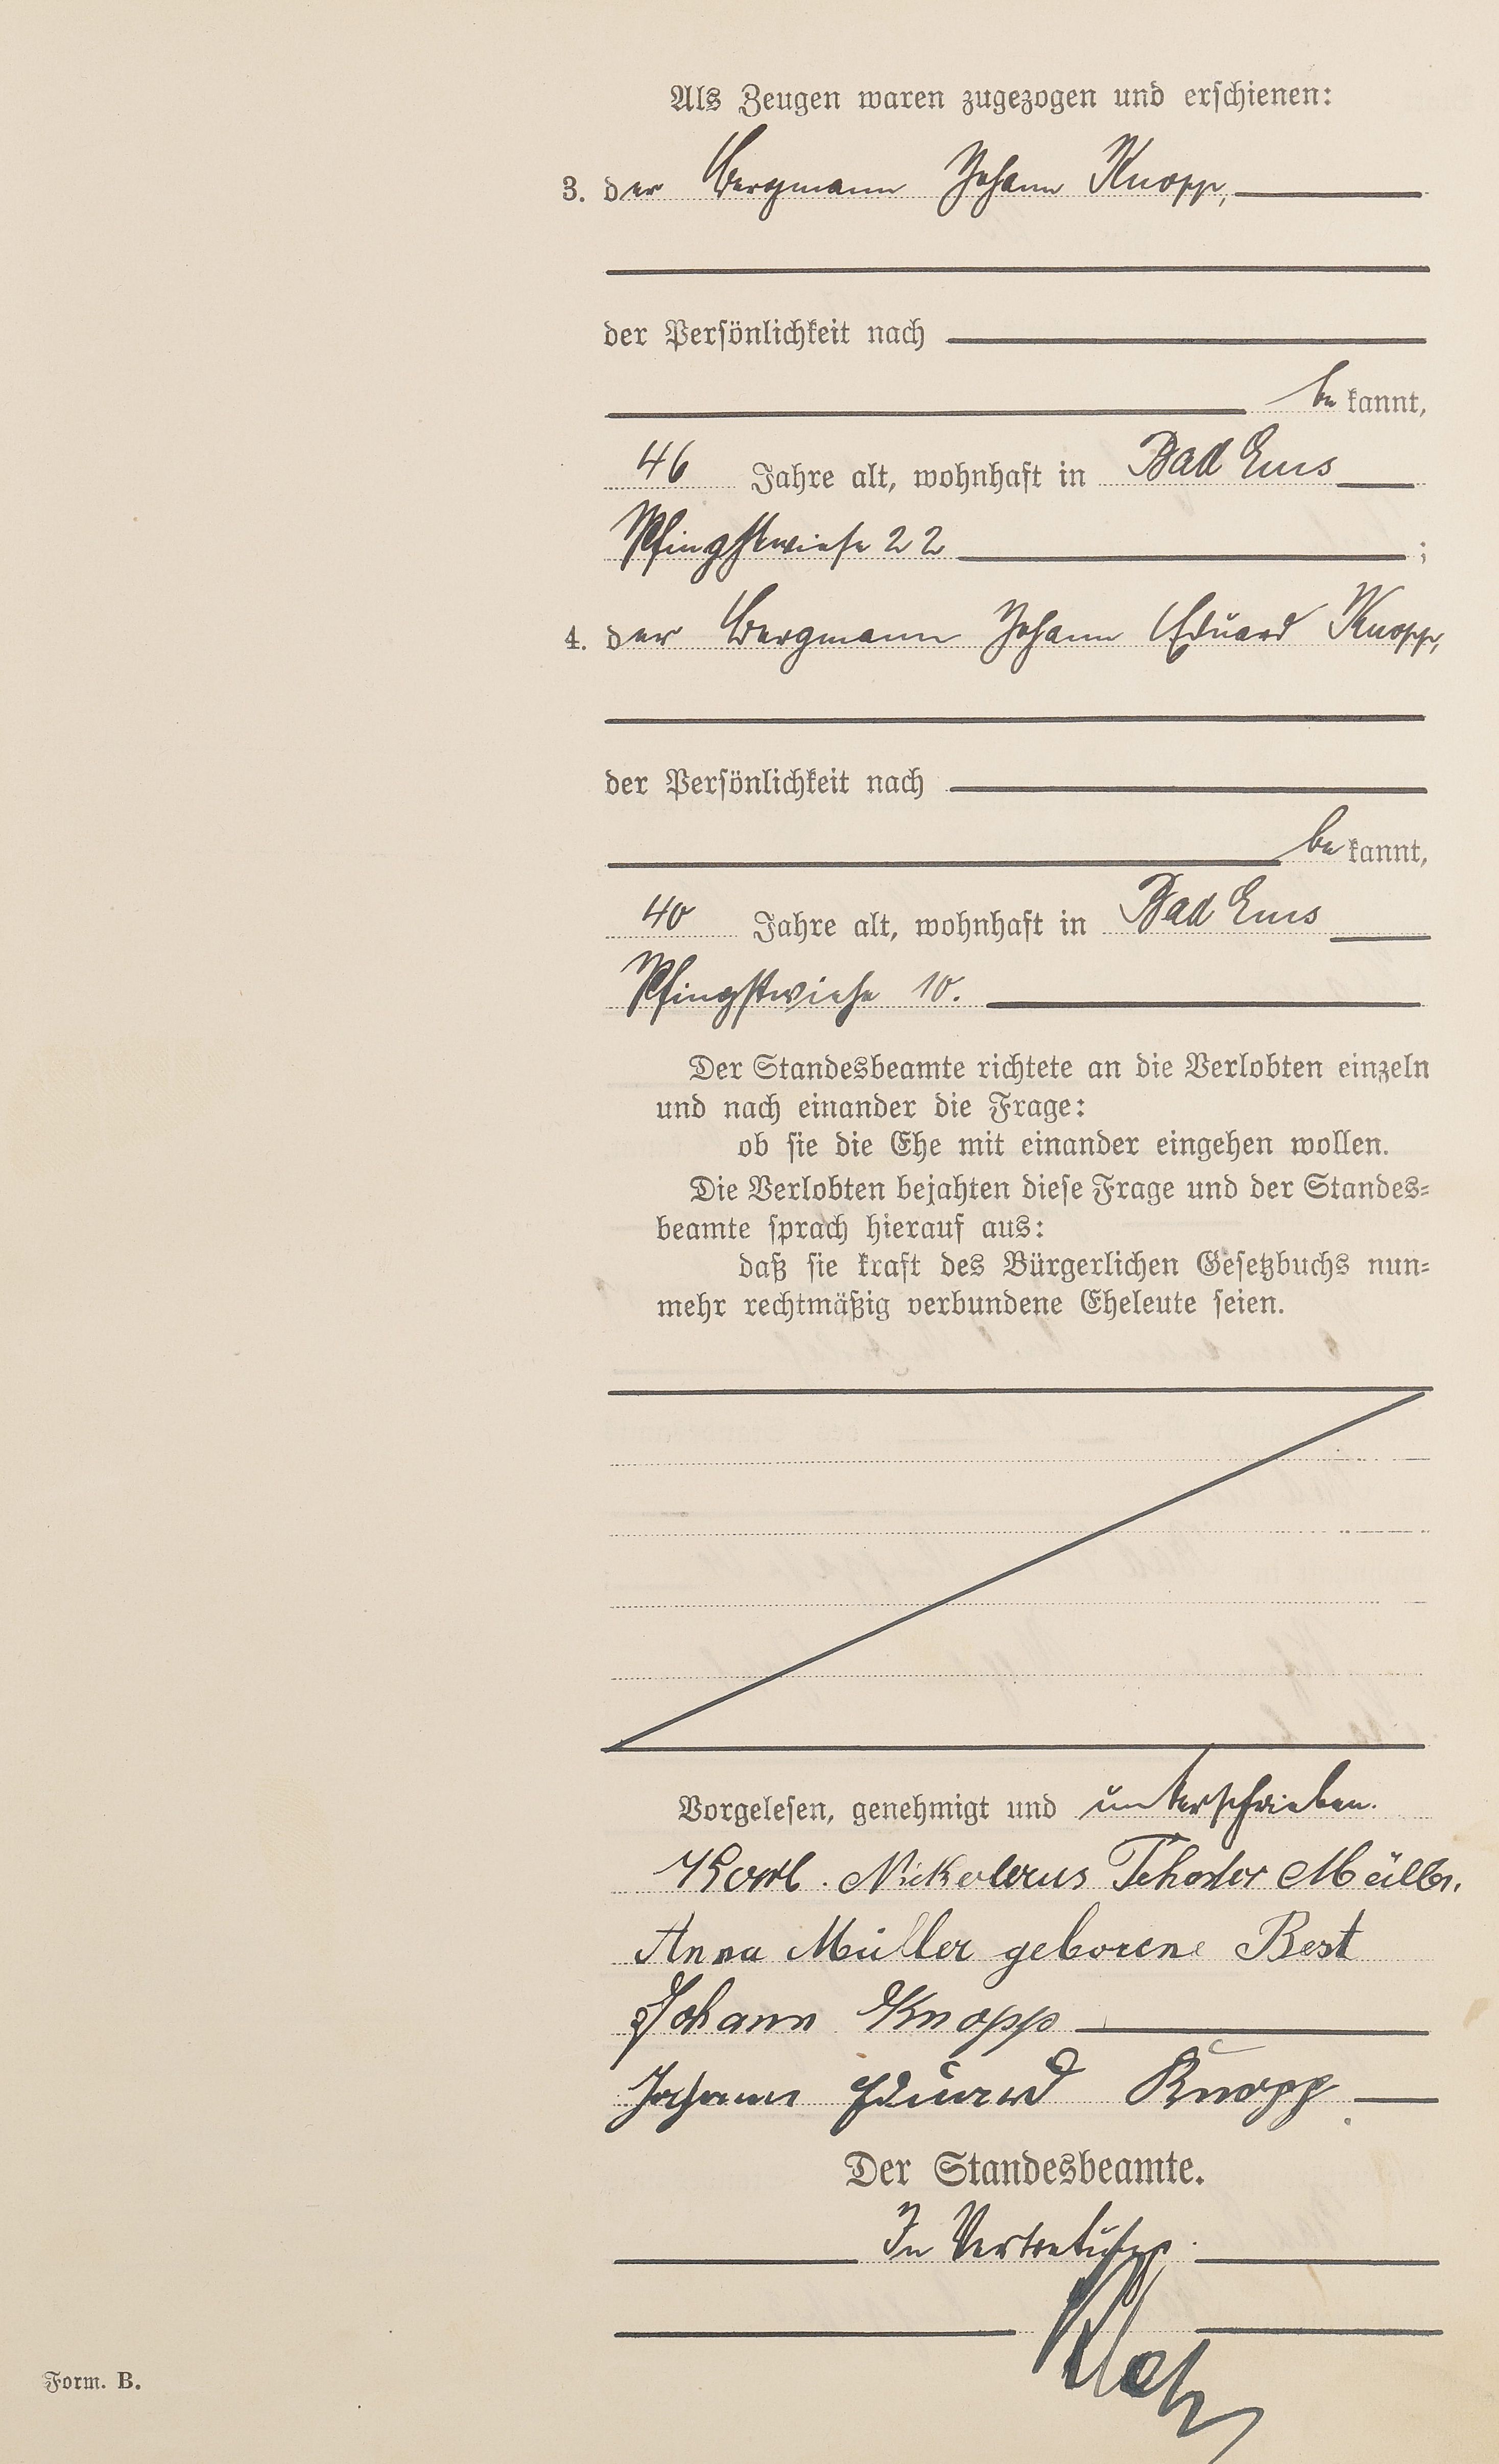 Als Zeugen waren zugezogen und erschienen:
3. der Bergmann Johann Knopp,
der Persönlichkeit nach
be kannt,
46 Jahre alt, wohnhaft in Bad Ems
Pfingstwiese 22 ;
4. der Bergmann Johann Eduard Knopp,
der Persönlichkeit nach
be kannt,
40 Jahre alt, wohnhaft in Bad Ems
Pfingstwiese 10.
Der Standesbeamte richtete an die Verlobten einzeln
und nach einander die Frage:
ob sie die Ehe mit einander eingehen wollen.
Die Verlobten bejahten diese Frage und der Standes=
beamte sprach hierauf aus:
daß sie kraft des Bürgerlichen Gesetzbuchs nun=
mehr rechtmäßig verbundene Eheleute seien.
Vorgelesen, genehmigt und unterschrieben.
Karl. Nickolaus Tehodor Müller.
Anna Müller geborene Best
Johann Knopp
Johann Eduard Knopp
Der Standesbeamte.
In Vertretung.
Form. B.